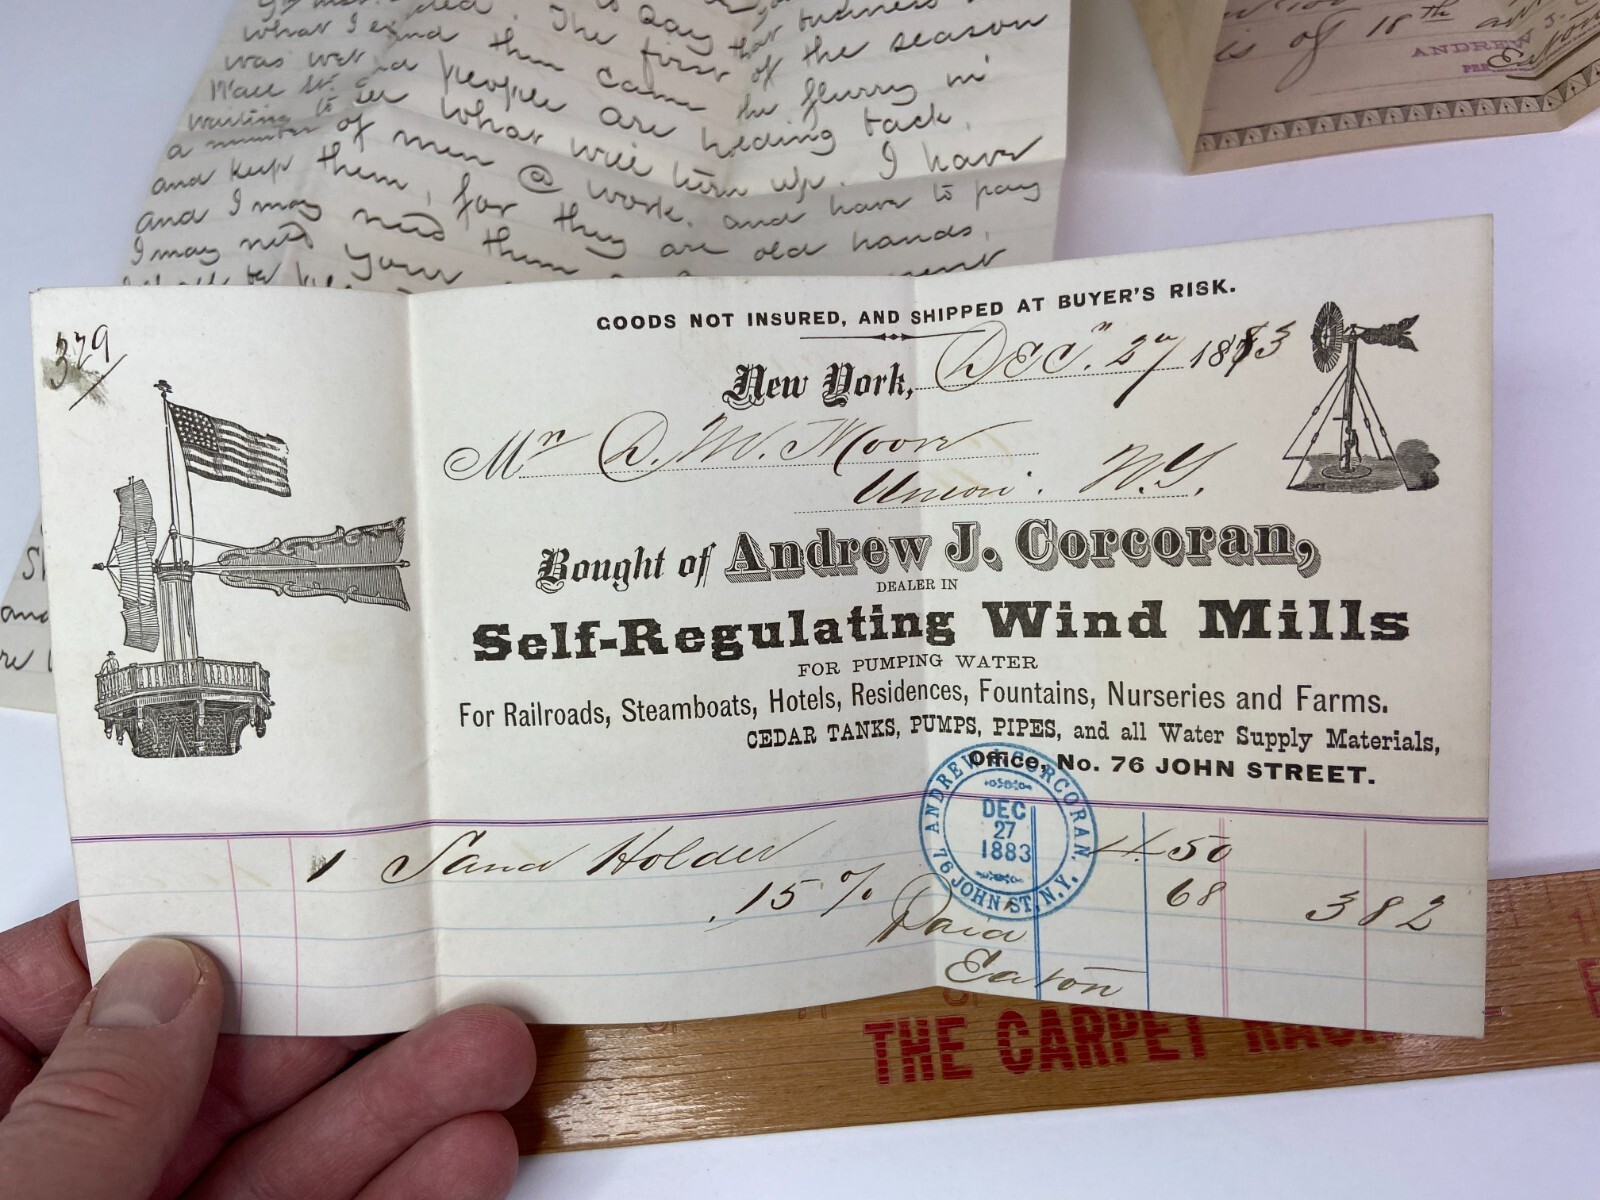 what I
The first
was wet and them came
of the season
people are holding back
the flurry in
waiting to see what will turn up. I have
a number of men @ work. and have to pay
and keep them, for they are old hands,
and I may need them
I may need your
is of 18th
ANDREW
PER
329
GOODS NOT INSURED, AND SHIPPED AT BUYER'S RISK.
New York, Dec. 27 1883
Mr D. W. Moor
Union. N.Y.
Bought of Andrew J. Corcoran,
DEALER IN
Self-Regulating Wind Mills
FOR PUMPING WATER
For Railroads, Steamboats, Hotels, Residences, Fountains, Nurseries and Farms.
CEDAR TANKS, PUMPS, PIPES, and all Water Supply Materials,
Office, No. 76 JOHN STREET.
ANDREW J. CORCORAN.
DEC
27
1883
76 JOHN ST. N.Y.
1 Sand Holder 4 50
15 % 68 3 82
Paid
Eaton
THE CARPET